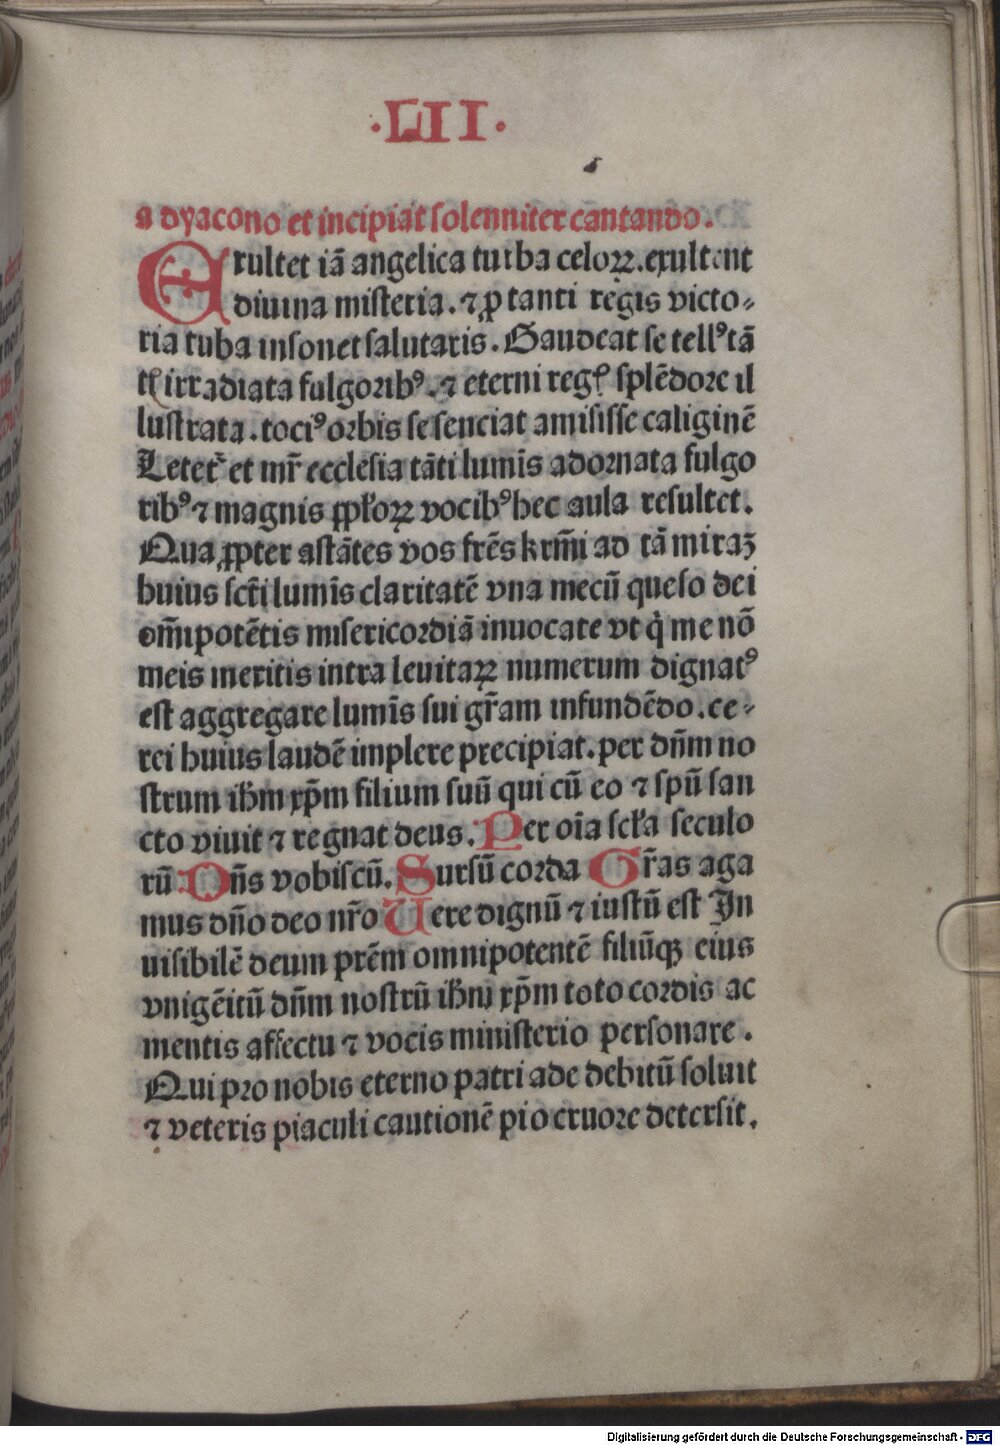 ·LII·
a dyacono et incipiat solenniter cantando.
Exultet iā angelica turba celoꝝ. exultent
diuina misteria. ⁊ ꝓ tanti regis victo-
ria tuba insonet salutaris. Gaudeat se tellꝰ tā
tꝭ irradiata fulgoribꝰ. ⁊ eterni regꝭ splēdore il
lustrata. tociꝰ orbis se senciat amisisse caliginē
Letet᷑ et mr̄ ecclesia tāti lumīs adornata fulgo
ribꝰ ⁊ magnis ppl'oꝝ vocibꝰ hec aula resultet.
Qua ꝓpter astātes vos frēs kr̄mi ad tā miraꝫ
huius sct̄i lumīs claritatē vna mecū queso dei
om̄ipotētis misericordiā inuocate vt q̇ me nō
meis meritis intra leuitaꝝ numerum dignatꝰ
est aggregare lumīs sui gr̄am infundēdo. ce-
rei huius laudē implere precipiat. per dn̄m no
strum ih̄m xp̄m filium suū qui cū eo ⁊ spū san
cto viuit ⁊ regnat deus. Per oīa scl'a seculo
rū Dn̄s vobiscū. Sursū corda Gr̄as aga
mus dn̄o deo nr̄o Uere dignū ⁊ iustū est In
uisibilē deum prēm omnipotentē filiūqꝫ eius
vnigēitū dn̄m nostrū ih̄m xp̄m toto cordis ac
mentis affectu ⁊ vocis ministerio personare.
Qui pro nobis eterno patri ade debitū soluit
⁊ veteris piaculi cautionē pio cruore detersit.
Digitalisierung gefördert durch die Deutsche Forschungsgemeinschaft - DFG